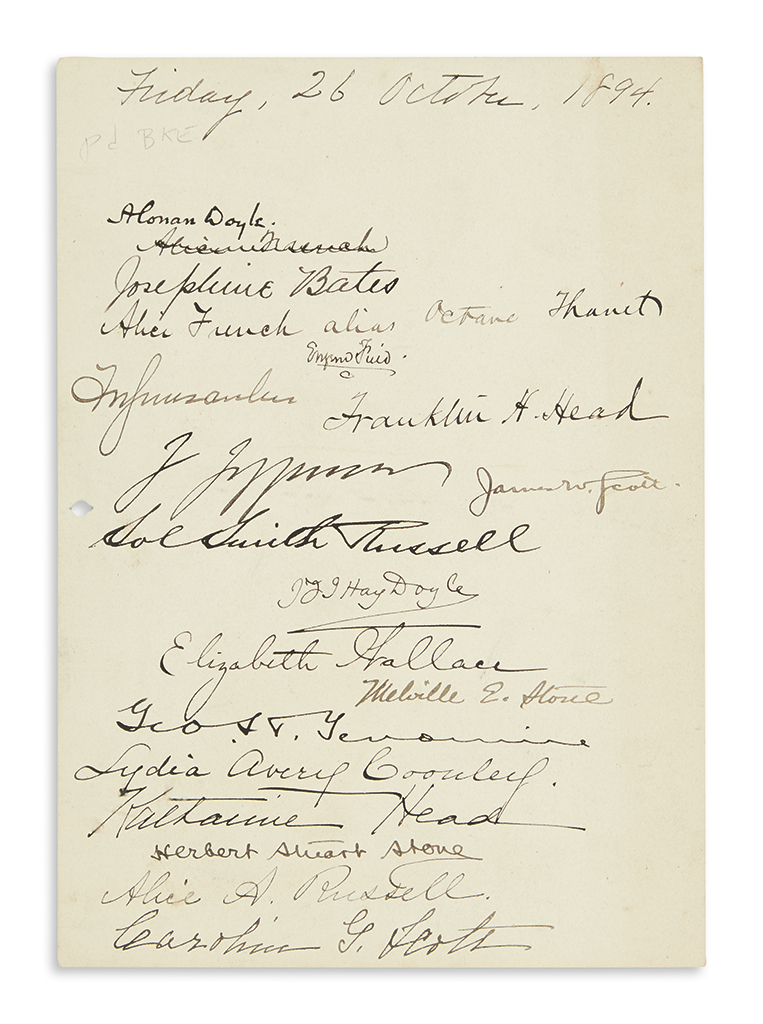 Friday, 26 October, 1894.
pd BKE
A Conan Doyle.
Alice French
Josephine Bates
Alice French alias Octave Thanet
Eugene Field.
Franklin H. Head
James W. Scott.
Sol Smith Russell
J F I Hay Doyle
Elizabeth Wallace
Melville E. Stone
Geo.
Lydia Avery Coonley.
Katharine Head
Herbert Stuart Stone
Alice A. Russell.
Caroline G. Scott